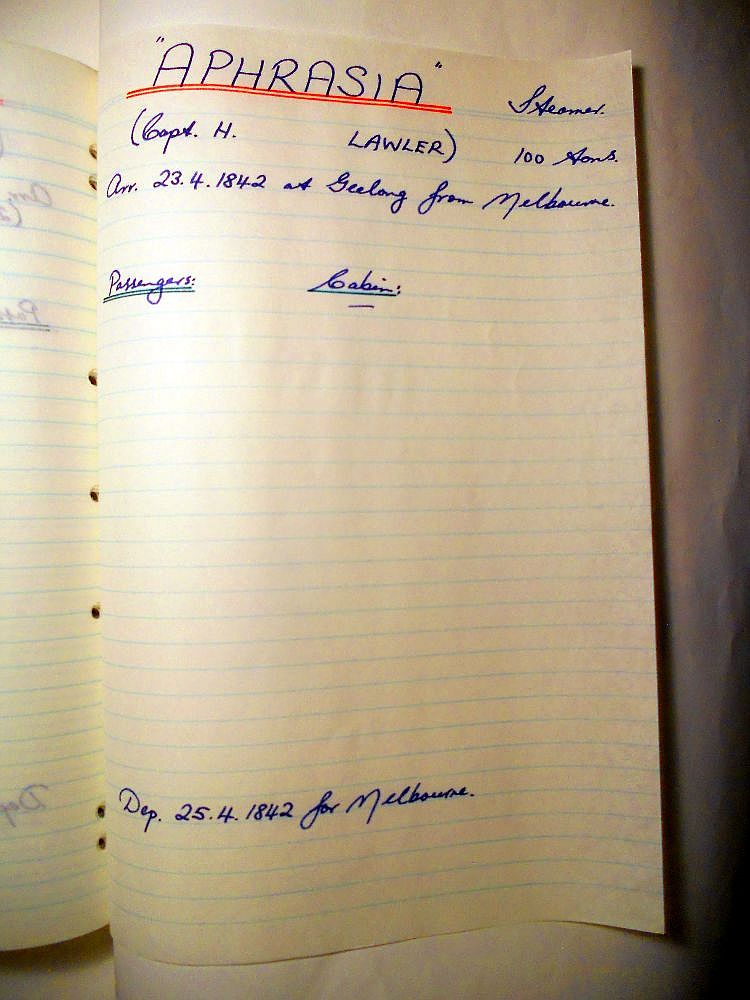 "APHRASIA" Steamer.
(Capt. H. LAWLER) 100 tons.
Arr. 23.4.1842 at Geelong from Melbourne.
Passengers: Cabin:
—
Dep. 25.4.1842 for Melbourne.